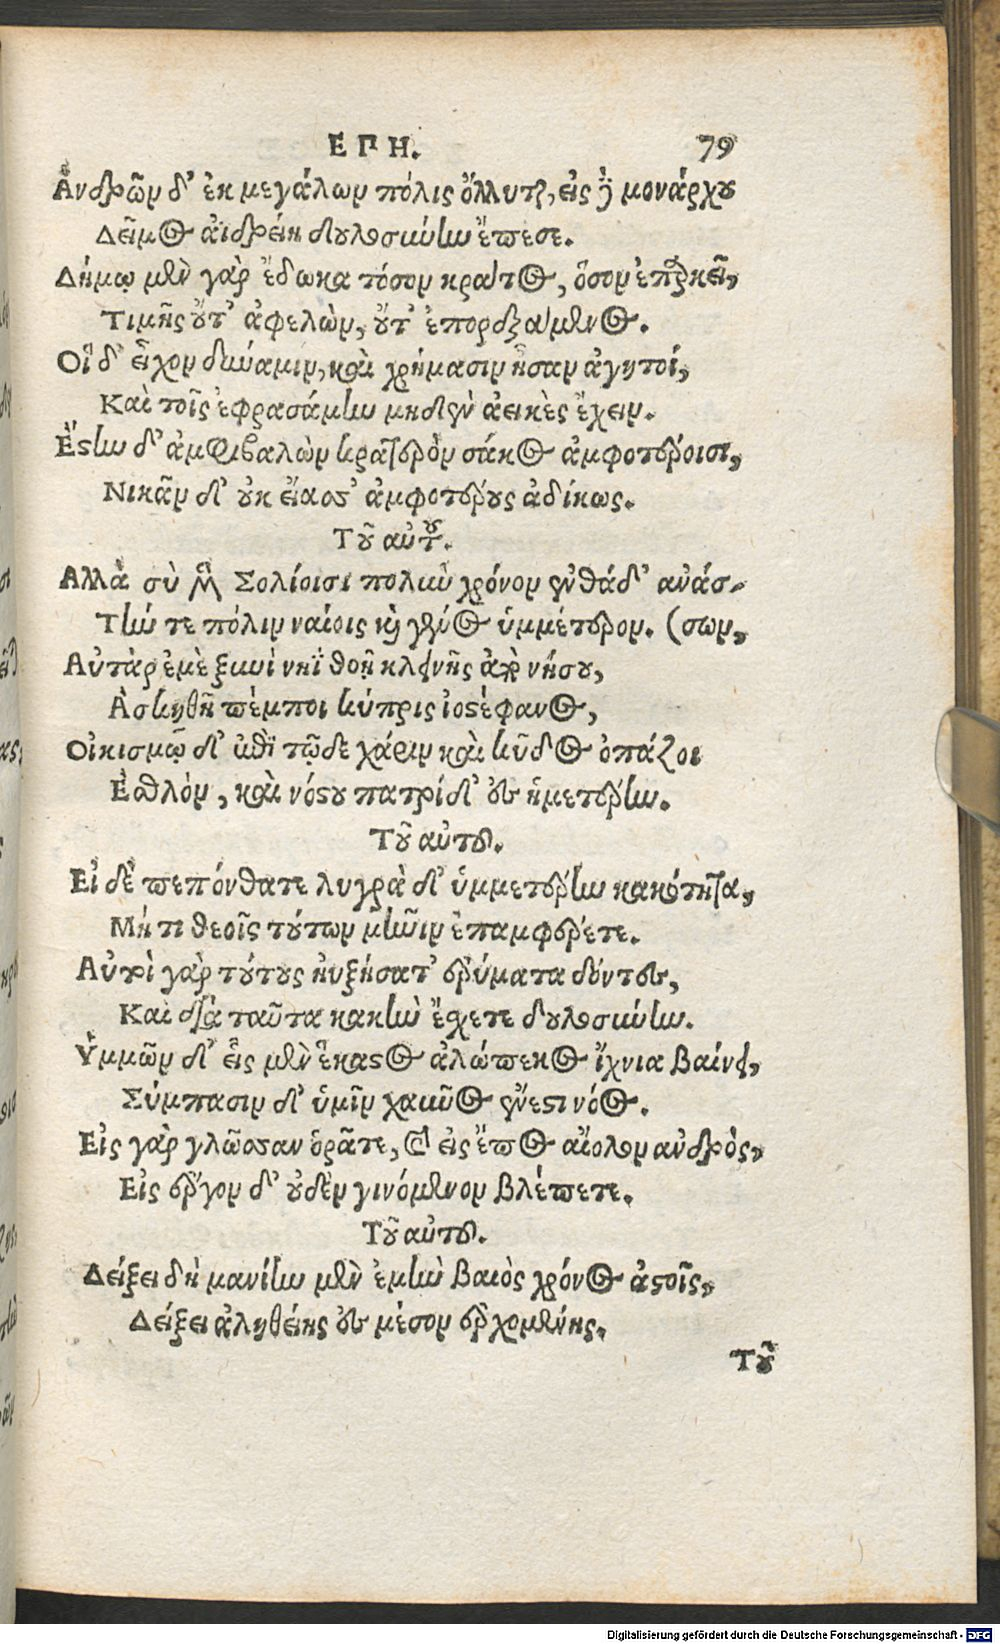 ΕΠΗ. 79
Ἀνδρῶν δ' ἐκ μεγάλων πόλις ὄλλυται, εἰς δὲ μονάρχου
Δῆμος ἀϊδρείη δουλοσύνην ἔπεσε.
Δήμῳ μὲν γὰρ ἔδωκα τόσον κράτος, ὅσον ἐπαρκεῖ,
Τιμῆς οὔτ' ἀφελὼν, οὔτ' ἐπορεξάμενος.
Οἳ δ' εἶχον δύναμιν, καὶ χρήμασιν ἦσαν ἀγητοί,
Καὶ τοῖς ἐφρασάμην μηδὲν ἀεικὲς ἔχειν.
Ἔστην δ' ἀμφιβαλὼν κρατερὸν σάκος ἀμφοτέροισι,
Νικᾶν δ' οὐκ εἴασ' ἀμφοτέρους ἀδίκως.
Τοῦ αὐτοῦ.
Αλλὰ σὺ μὲν Σολίοισι πολὺν χρόνον ἐνθάδ' ἀνάσ-
Τήν τε πόλιν ναίοις καὶ γένος ὑμμέτερον. (σων,
Αὐτὰρ ἐμὲ ξυνὶ νηῒ θοῇ κλεινῆς ἀπὸ νήσου,
Ἀσκηθῆ πέμποι κύπρις ἰοστέφανος,
Οἰκισμῷ δ' ἐπὶ τῷδε χάριν καὶ κῦδος ὀπάζοι
Ἐσθλόν, καὶ νόστου πατρίδ' ἐς ἡμετέρην.
Τοῦ αὐτοῦ.
Εἰ δὲ πεπόνθατε λυγρὰ δι' ὑμμετέρην κακότητα,
Μή τι θεοῖς τούτων μῆνιν ἐπαμφέρετε.
Αὐτοὶ γὰρ τούτους ηὐξήσατ' ἐρύματα δόντες,
Καὶ διὰ ταῦτα κακὴν ἔχετε δουλοσύνην.
Ὑμμῶν δ' εἷς μὲν ἕκαστος ἀλώπεκος ἴχνια βαίνει,
Σύμπασιν δ' ὑμῖν χαῦνος ἔνεστι νόος.
Εἰς γὰρ γλῶσσαν ὁρᾶτε, καὶ εἰς ἔπος αἴολον ἀνδρὸς,
Εἰς ἔργον δ' οὐδὲν γινόμενον βλέπετε.
Τοῦ αὐτοῦ.
Δείξει δὴ μανίην μὲν ἐμὴν βαιὸς χρόνος ἀστοῖς,
Δείξει ἀληθείης ἐς μέσον ἐρχομένης.
Τοῦ
Digitalisierung gefördert durch die Deutsche Forschungsgemeinschaft - DFG